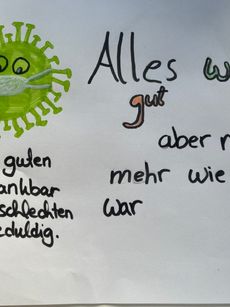 Alles w
gut
aber
mehr wie
war
guten
ankbar
schlechten
eduldig.